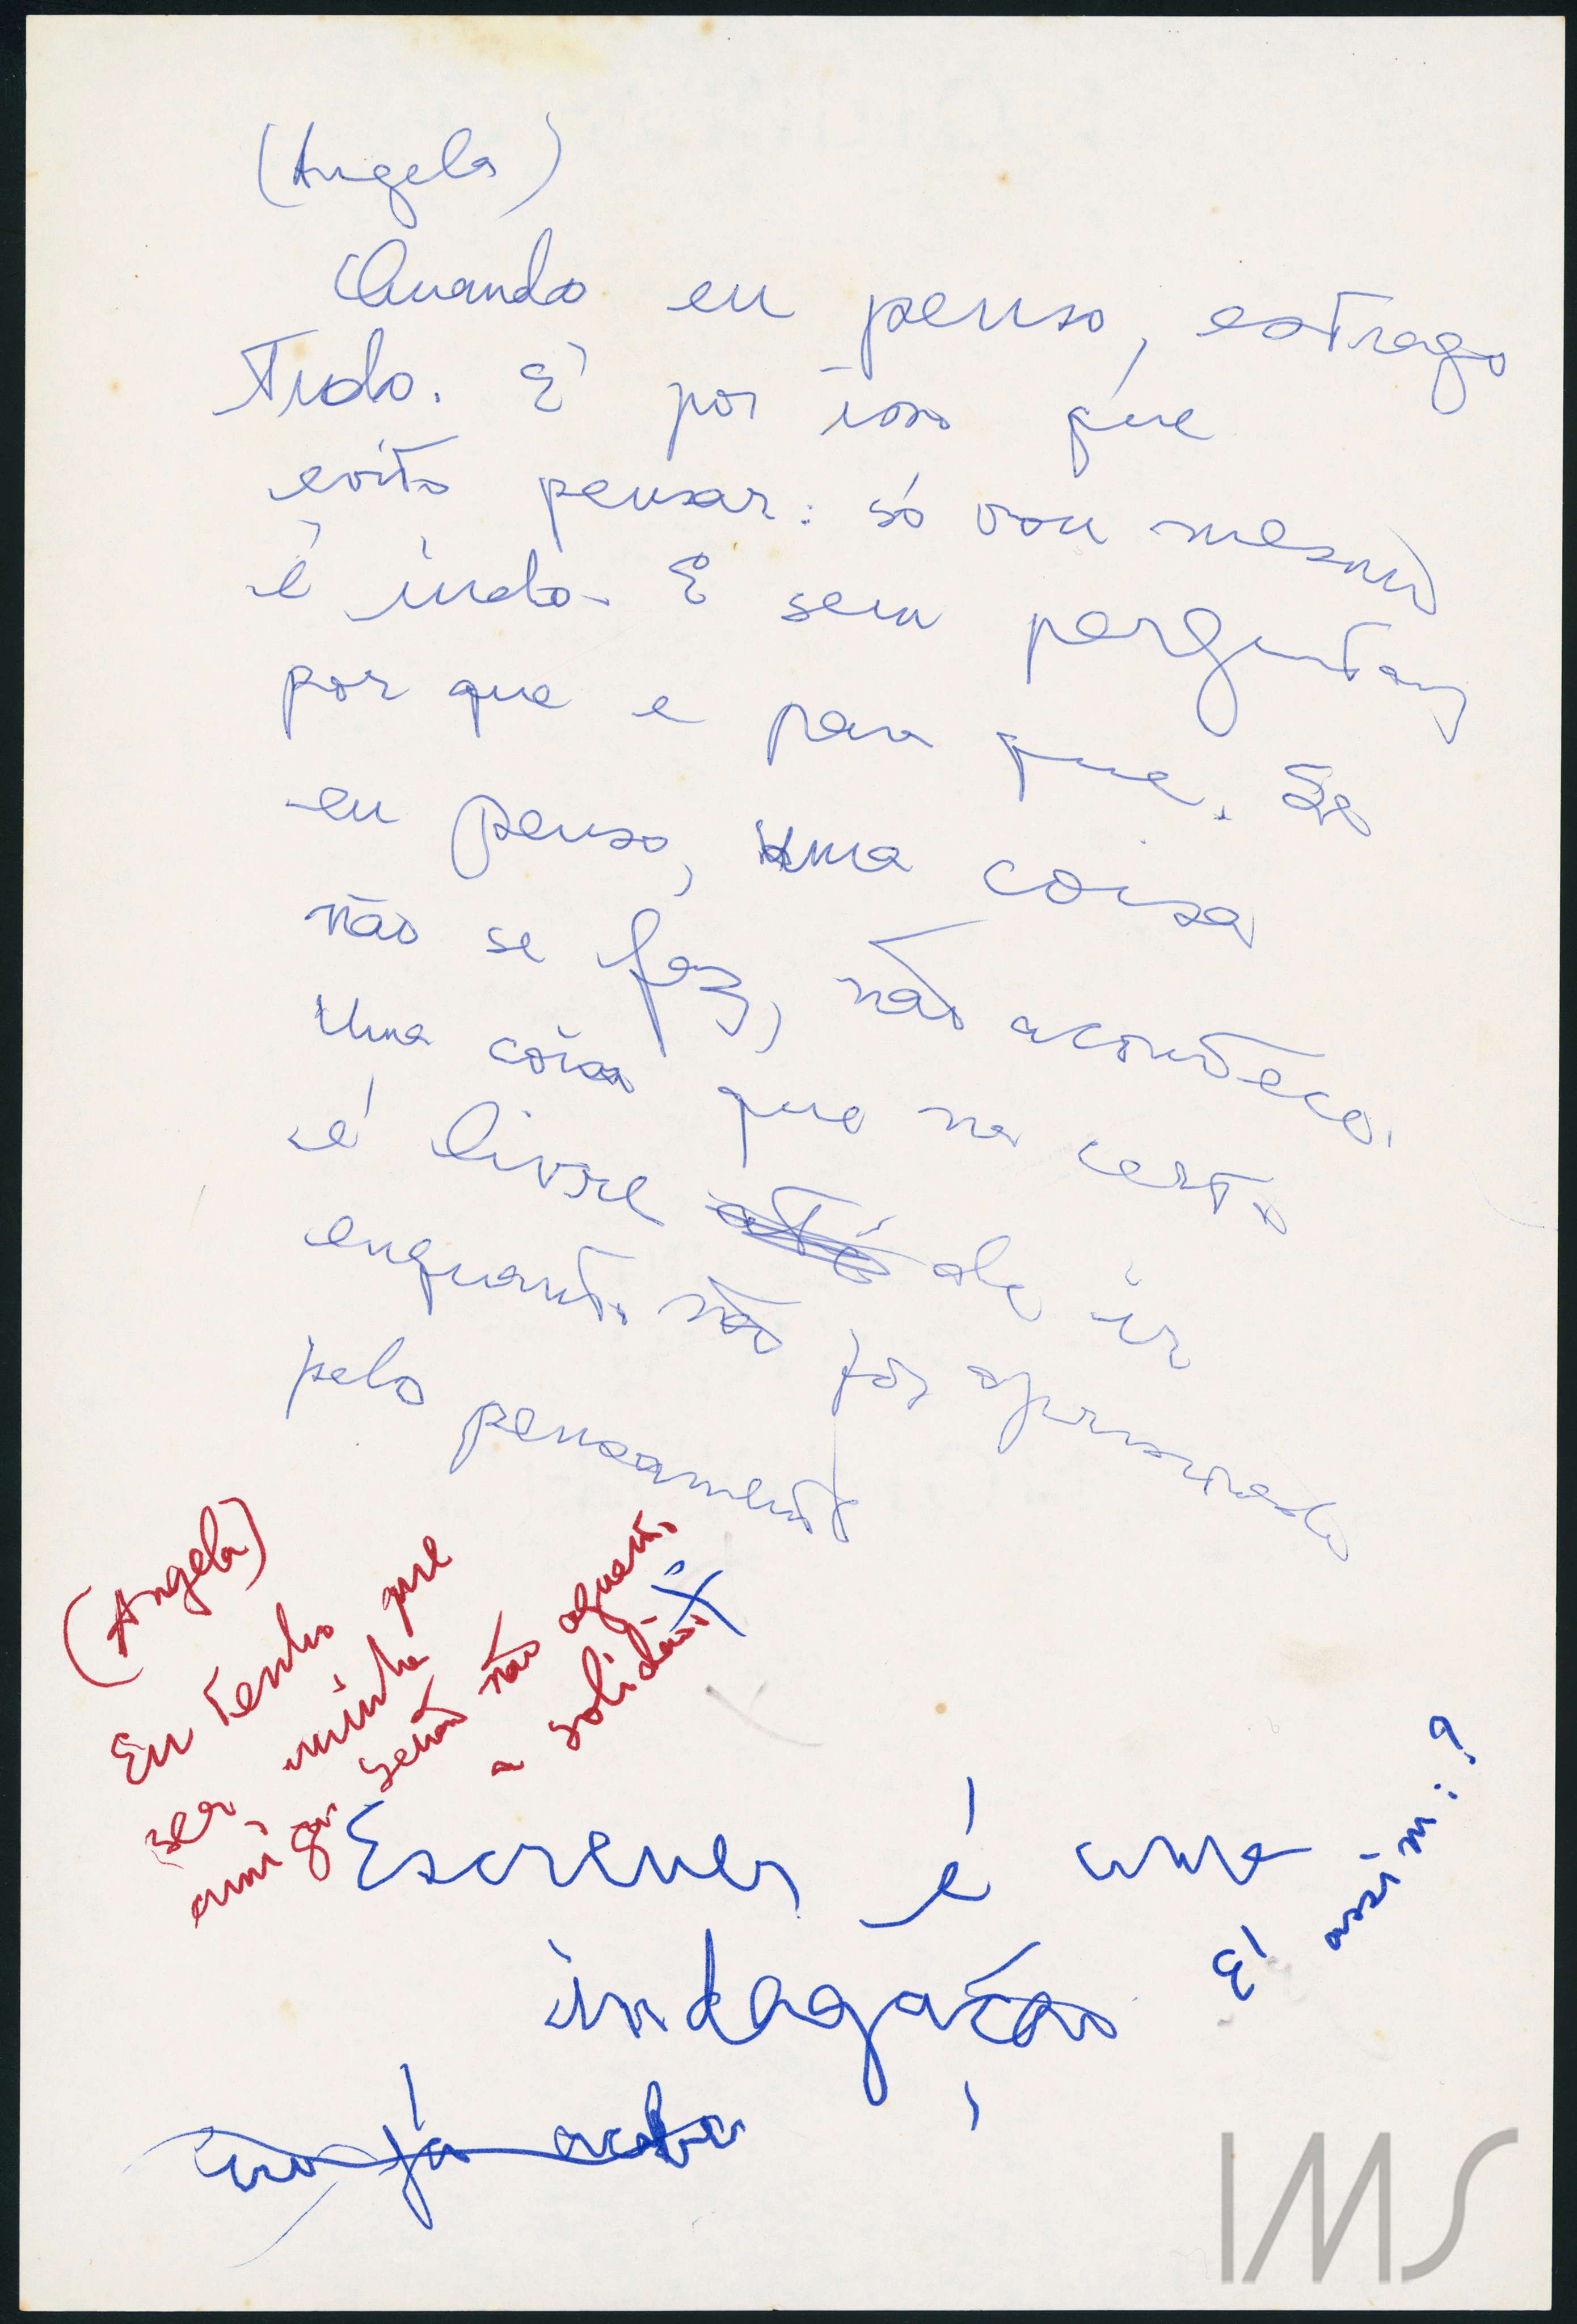 (Angela)
Quando eu penso, estrago
tudo. É por isso que
evito pensar: só vou mesmo
é indo. E sem perguntar
por que e para que. Se
eu penso, uma coisa
não se faz, não acontece.
Uma coisa que na certa
é livre até de ir
enquanto não for aprisionada
pelo pensamento
(Angela)
Eu tenho que
ser minha
amiga senão não aguento
a solidão.
X
Escrever é uma
indagação
É assim: ?
já acabo
IMS